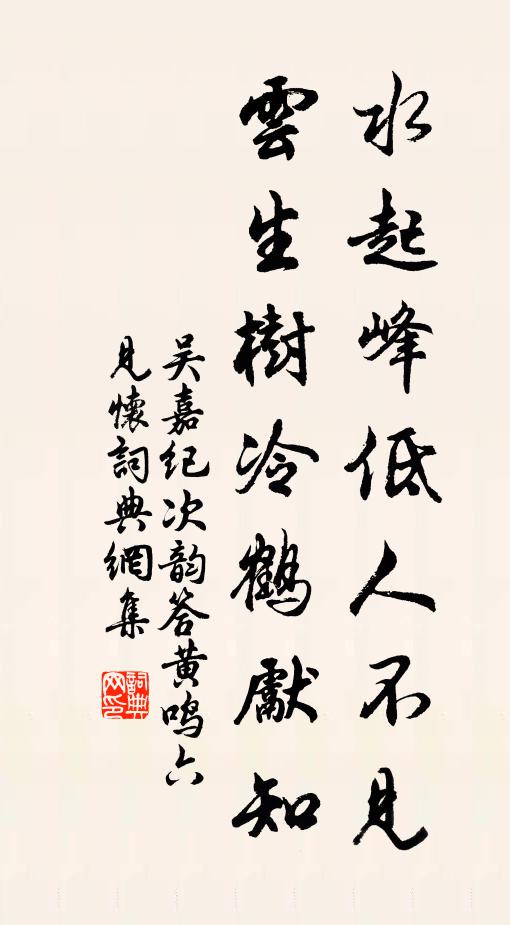 水起峰低人不見
雲生樹冷鶴獻知
吴嘉纪次韵答黄鸣六
見懷詞典網集
詞典网印